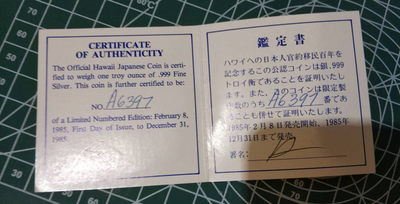 CERTIFICATE
OF AUTHENTICITY
The Official Hawaii Japanese Coin is certi-
fied to weigh one troy ounce of .999 Fine
Silver. This coin is further certified to be:
NO. A6397
of a Limited Numbered Edition: February 8,
1985, First Day of Issue, to December 31,
1985.
鑑定書
ハワイへの日本人官約移民百年を
記念するこの公認コインは銀.999
トロイ衡であることを証明いたし
ます。また、このコインは限定製
作数のうち A6397 番であ
ることも併せて証明いたします。
1985年2月8日発売開始、1985年
12月31日まで発売。
署名:
70
60
50
70
80